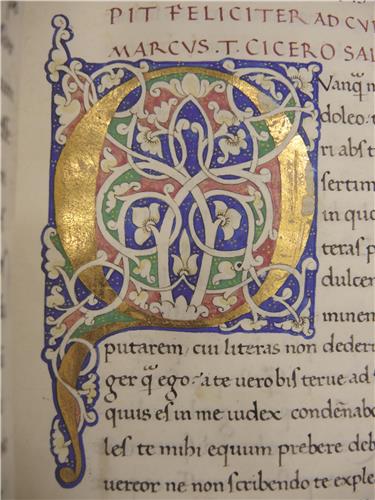 PIT FELICITER AD CVR
MARCVS. T. CICERO SAL
Q Vanq̃ m
doleo. t
ri abs t
sertim
in quo
teras p
dulcem
minem
putarem, cui literas non dederi
ger q̃ ego. a te uero bis terue ad
quis es in me iudex condẽnabo
les te mihi equum prebere deb
uereor ne non scribendo te exple